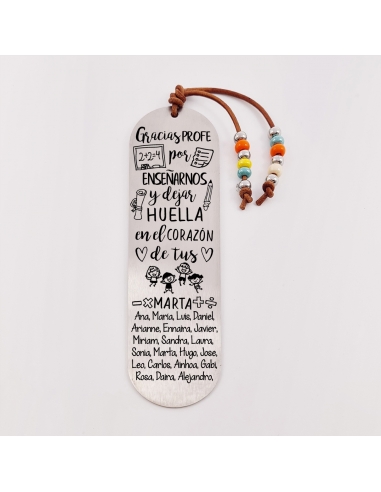 Gracias PROFE
2+2=4
por
ENSEÑARNOS
y dejar
HUELLA
en el CORAZÓN
de tus
-×MARTA+÷
Ana, Maria, Luis, Daniel,
Arianne, Ennaira, Javier,
Miriam, Sandra, Laura,
Sonia, Marta, Hugo, Jose,
Leo, Carlos, Ainhoa, Gabi,
Rosa, Daira, Alejandro,